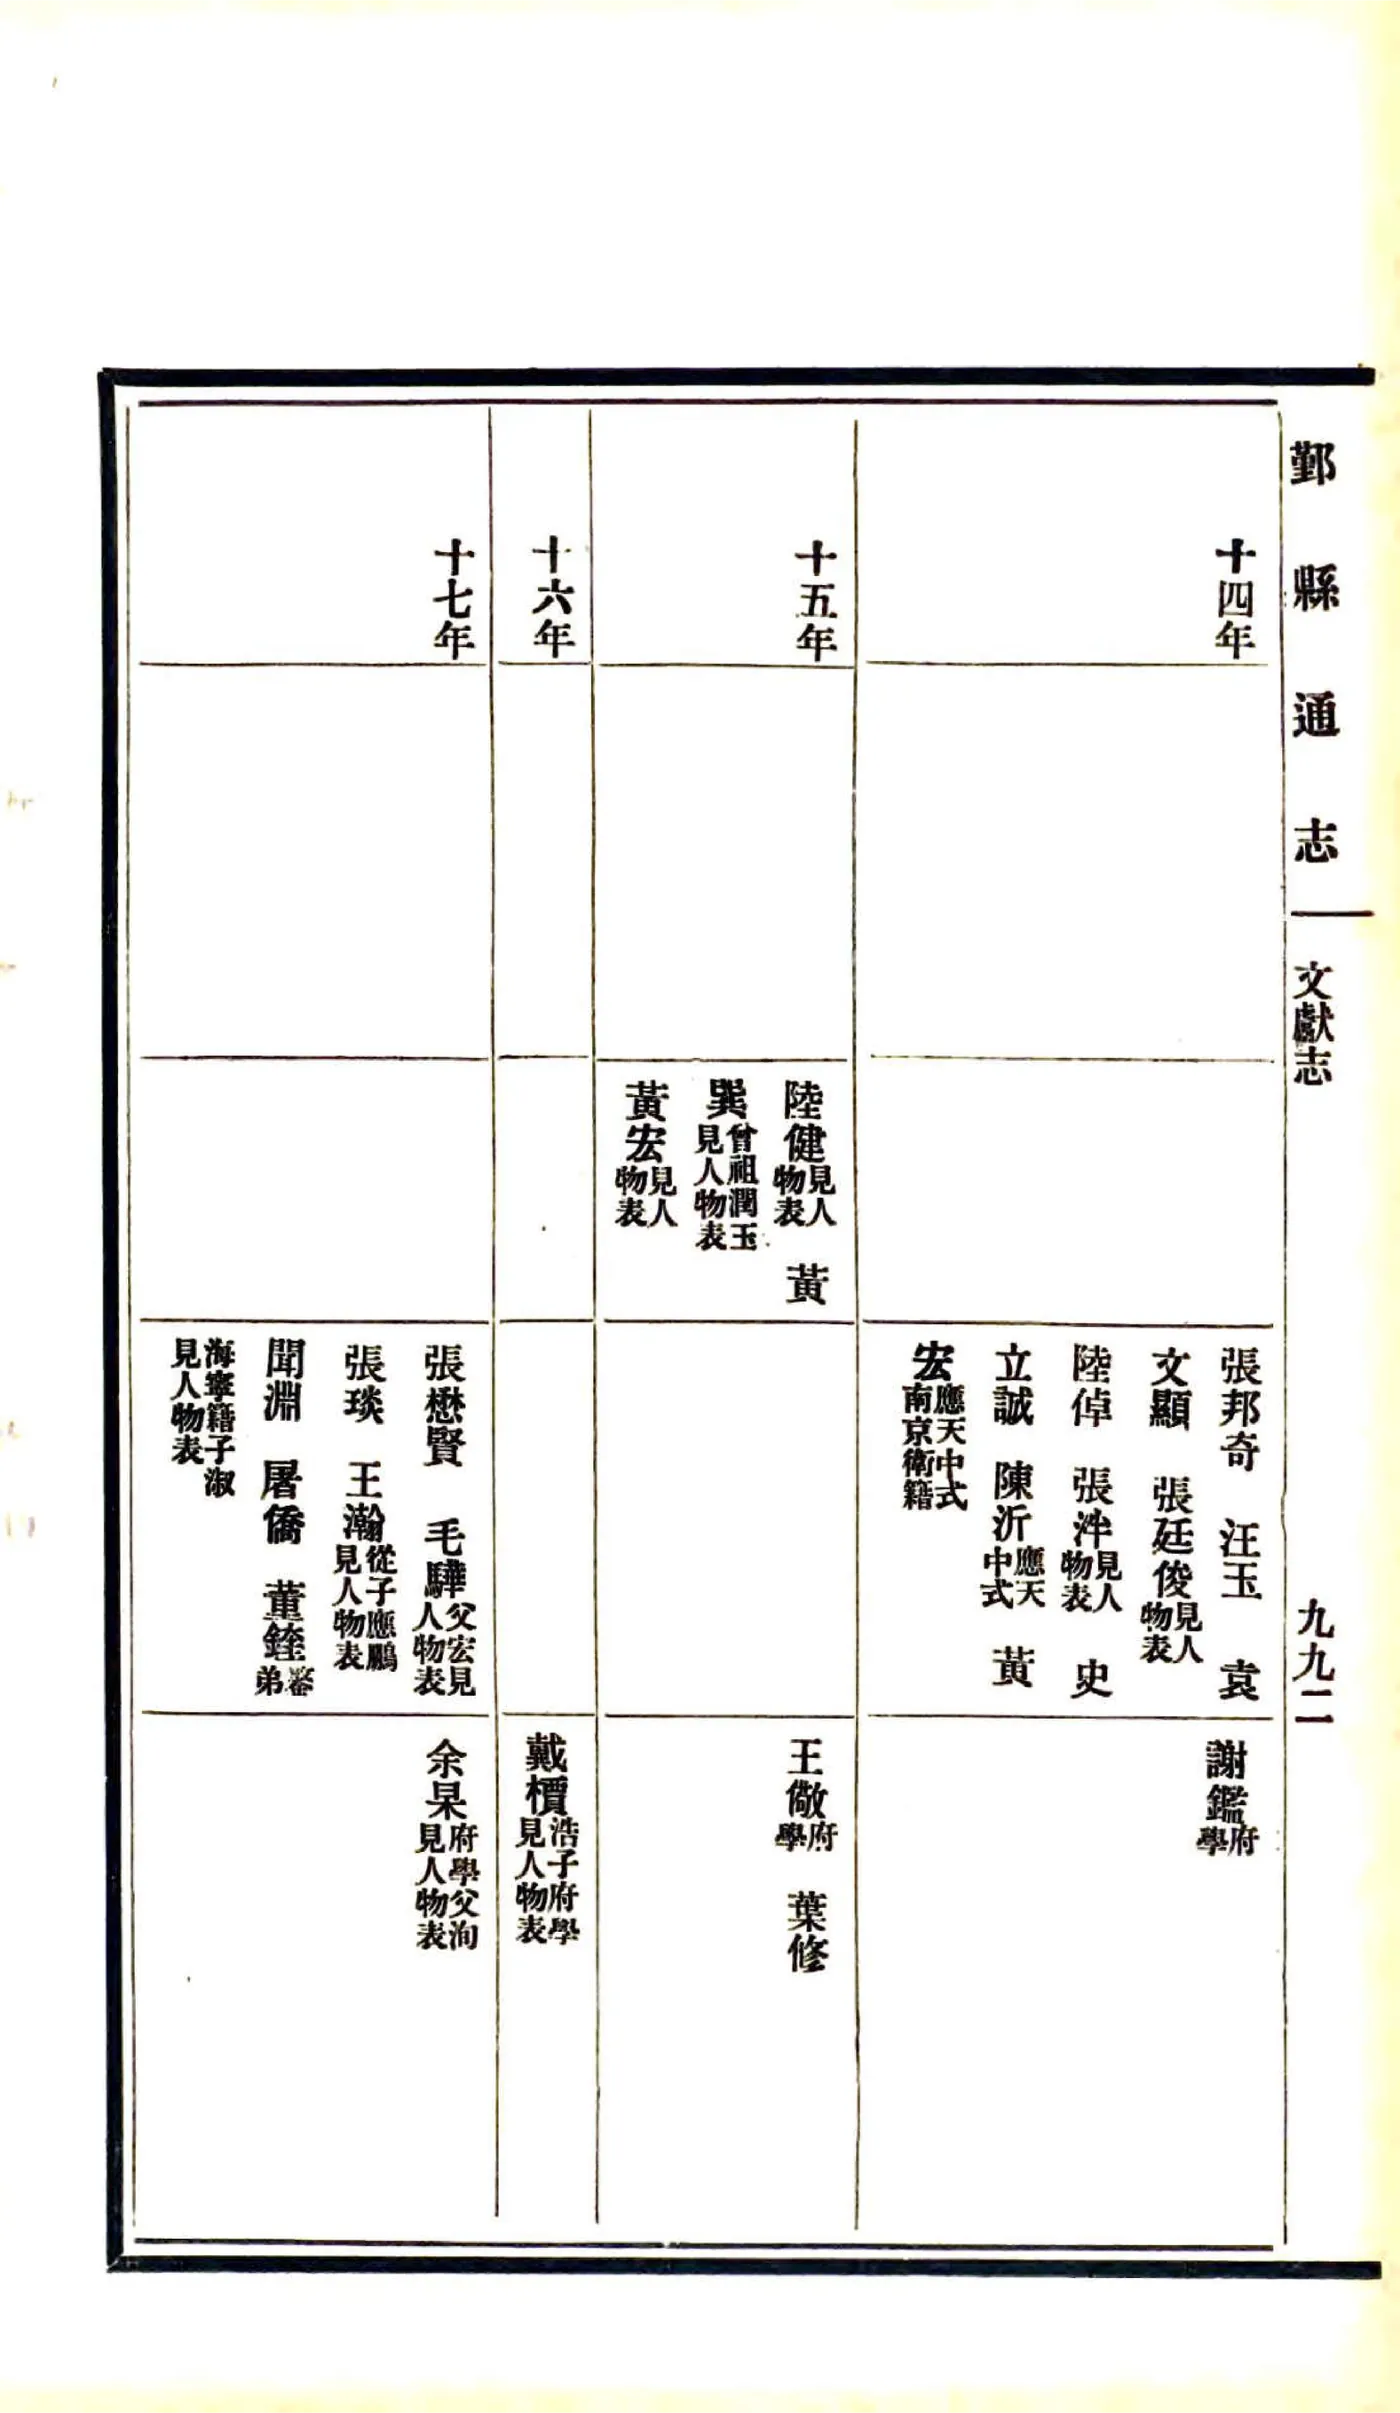 鄞縣通志
文獻志
九九二
十四年
張邦奇　汪玉　袁
文顯　張廷俊見人物表
陸倬　張泮見人物表　史
立誠　陳沂應天中式　黃
宏應天中式南京衛籍
謝鑑府學
十五年
陸健見人物表　黃
巽曾祖潤玉見人物表
黃宏見人物表
王儆府學　葉修
十六年
戴檟浩子府學見人物表
十七年
張懋賢　毛驊父宏見人物表
張琰　王瀚從子應鵬見人物表
聞淵　屠僑　董鏊弟
海寧籍子淑見人物表
余杲府學父洵見人物表